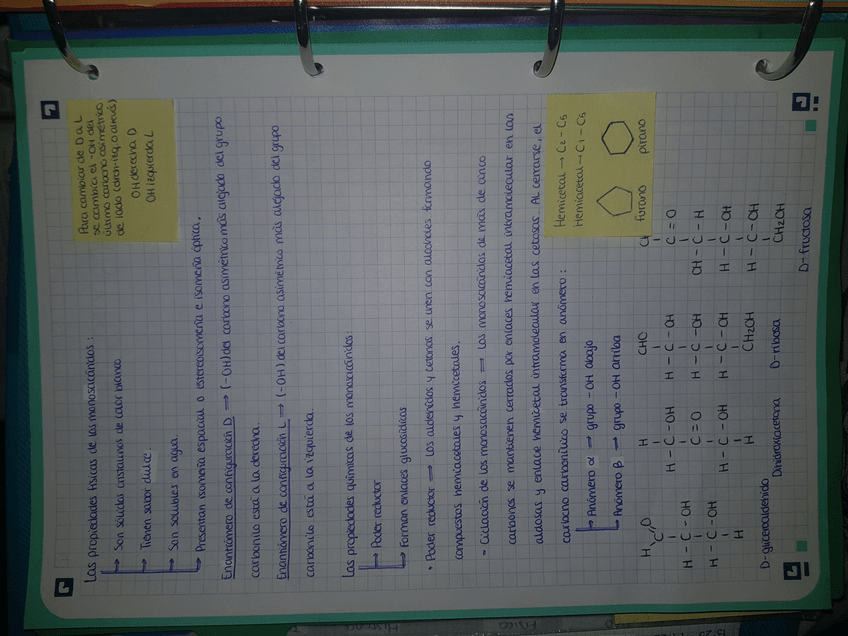 Para cambiar de D a L
se cambia el -OH del
último carbono asimétrico
de lado (drch-izq o alrevés)
OH derecha D
OH izquierda L
Las propiedades físicas de los monosacáridos:
→ Son sólidos cristalinos de color blanco
→ Tienen sabor dulce.
→ Son solubles en agua.
→ Presentan isomería espacial o estereoisomería e isomería óptica.
Enantiómero de configuración D ⟹ (-OH) del carbono asimétrico más alejado del grupo
carbonilo está a la derecha.
Enantiómero de configuración L ⟹ (-OH) del carbono asimétrico más alejado del grupo
carbonilo está a la izquierda.
Las propiedades químicas de los monosacáridos:
→ Poder reductor
→ Forman enlaces glucosídicos
• Poder reductor ⟹ Los aldehídos y cetonas se unen con alcoholes formando
compuestos hemiacetales y hemicetales.
• Ciclación de los monosacáridos ⟹ Los monosacáridos de más de cinco
carbonos se mantienen cerrados por enlaces hemiacetal intramolecular en las
aldosas y enlace hemicetal intramolecular en las cetosas. Al cerrarse, el
carbono carbonílico se transforma en anómero:
→ Anómero α → grupo -OH abajo
→ Anómero β → grupo -OH arriba
Hemicetal → C2 - C5
Hemiacetal → C1 - C5
furano pirano
H O
C
H - C - OH
H - C - OH
H
D-gliceraldehído
H
H - C - OH
C = O
H - C - OH
H
Dihidroxiacetona
CHO
H - C - OH
H - C - OH
H - C - OH
CH2OH
D-ribosa
C = O
OH - C - H
H - C - OH
H - C - OH
CH2OH
D-fructosa